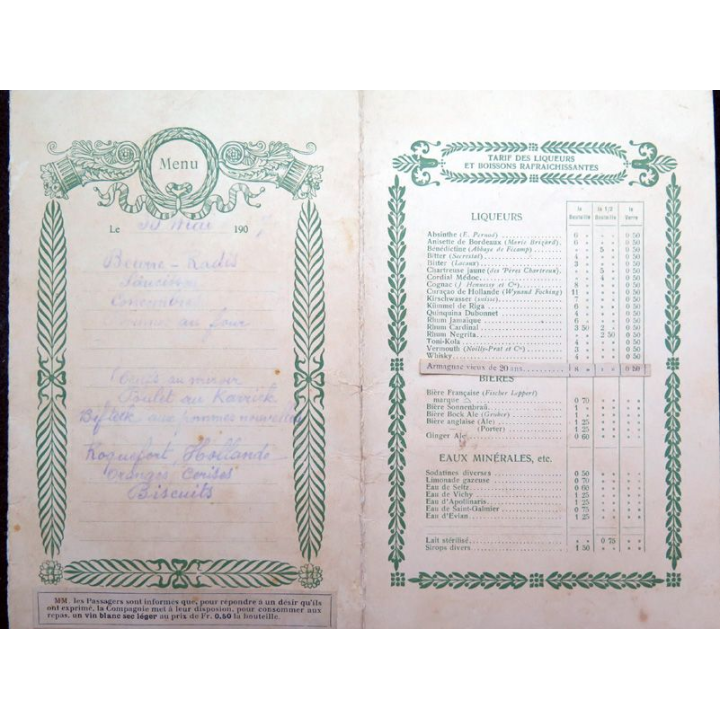 Menu
Le Mai 1907
Beurre - Radis
Saucisson
Concombres
au four
Oeufs au miroir
Poulet au Karrick
Bifteck aux pommes nouvelles
Roquefort, Hollande
Oranges, Cerises
Biscuits
MM. les Passagers sont informés que, pour répondre à un désir qu'ils
ont exprimé, la Compagnie met à leur disposition, pour consommer aux
repas, un vin blanc sec léger au prix de Fr. 0,50 la bouteille.
TARIF DES LIQUEURS
ET BOISSONS RAFRAICHISSANTES
LIQUEURS la Bouteille la 1/2 Bouteille le Verre
Absinthe (E. Pernod) 6 » » » 0 50
Anisette de Bordeaux (Marie Brizard) 6 » » » 0 50
Bénédictine (Abbaye de Fécamp) » » 5 » 0 50
Bitter (Secrestat) 4 » » » 0 50
Bitter 3 » » » 0 50
Chartreuse jaune (des Pères Chartreux) » » 5 » 0 50
Cordial Médoc » » 4 » 0 50
Cognac (J. Hennessy et Cie) 8 » » » 0 50
Curaçao de Hollande (Wynand Focking) 11 » » » 0 50
Kirschwasser (suisse) 7 » » » 0 50
Kümmel de Riga 6 » » » 0 50
Quinquina Dubonnet 4 » » » 0 50
Rhum Jamaïque 6 » » » 0 50
Rhum Cardinal 3 50 2 » 0 50
Rhum Negrita » » 2 50 0 50
Toni-Kola 4 » » » 0 50
Vermouth (Noilly-Prat et Cie) 3 » » » 0 50
Whisky 4 » » » 0 50
Armagnac vieux de 20 ans 8 » » » 0 50
BIÈRES
Bière Française (Fischer Leppert)
marque 0 70 » » » »
Bière Sonnenbraü 1 » » » » »
Bière Bock Ale (Gruber) 1 » » » » »
Bière anglaise (Ale) 1 25 » » » »
(Porter) 1 25 » » » »
Ginger Ale 0 60 » » » »
EAUX MINÉRALES, etc.
Sodatines diverses 0 50 » » » »
Limonade gazeuse 0 70 » » » »
Eau de Seltz 0 60 » » » »
Eau de Vichy 1 25 » » » »
Eau d'Apollinaris 1 25 » » » »
Eau de Saint-Galmier 0 75 » » » »
Eau d'Evian 1 25 » » » »
Lait stérilisé » » 0 75 » »
Sirops divers 1 50 » » » »